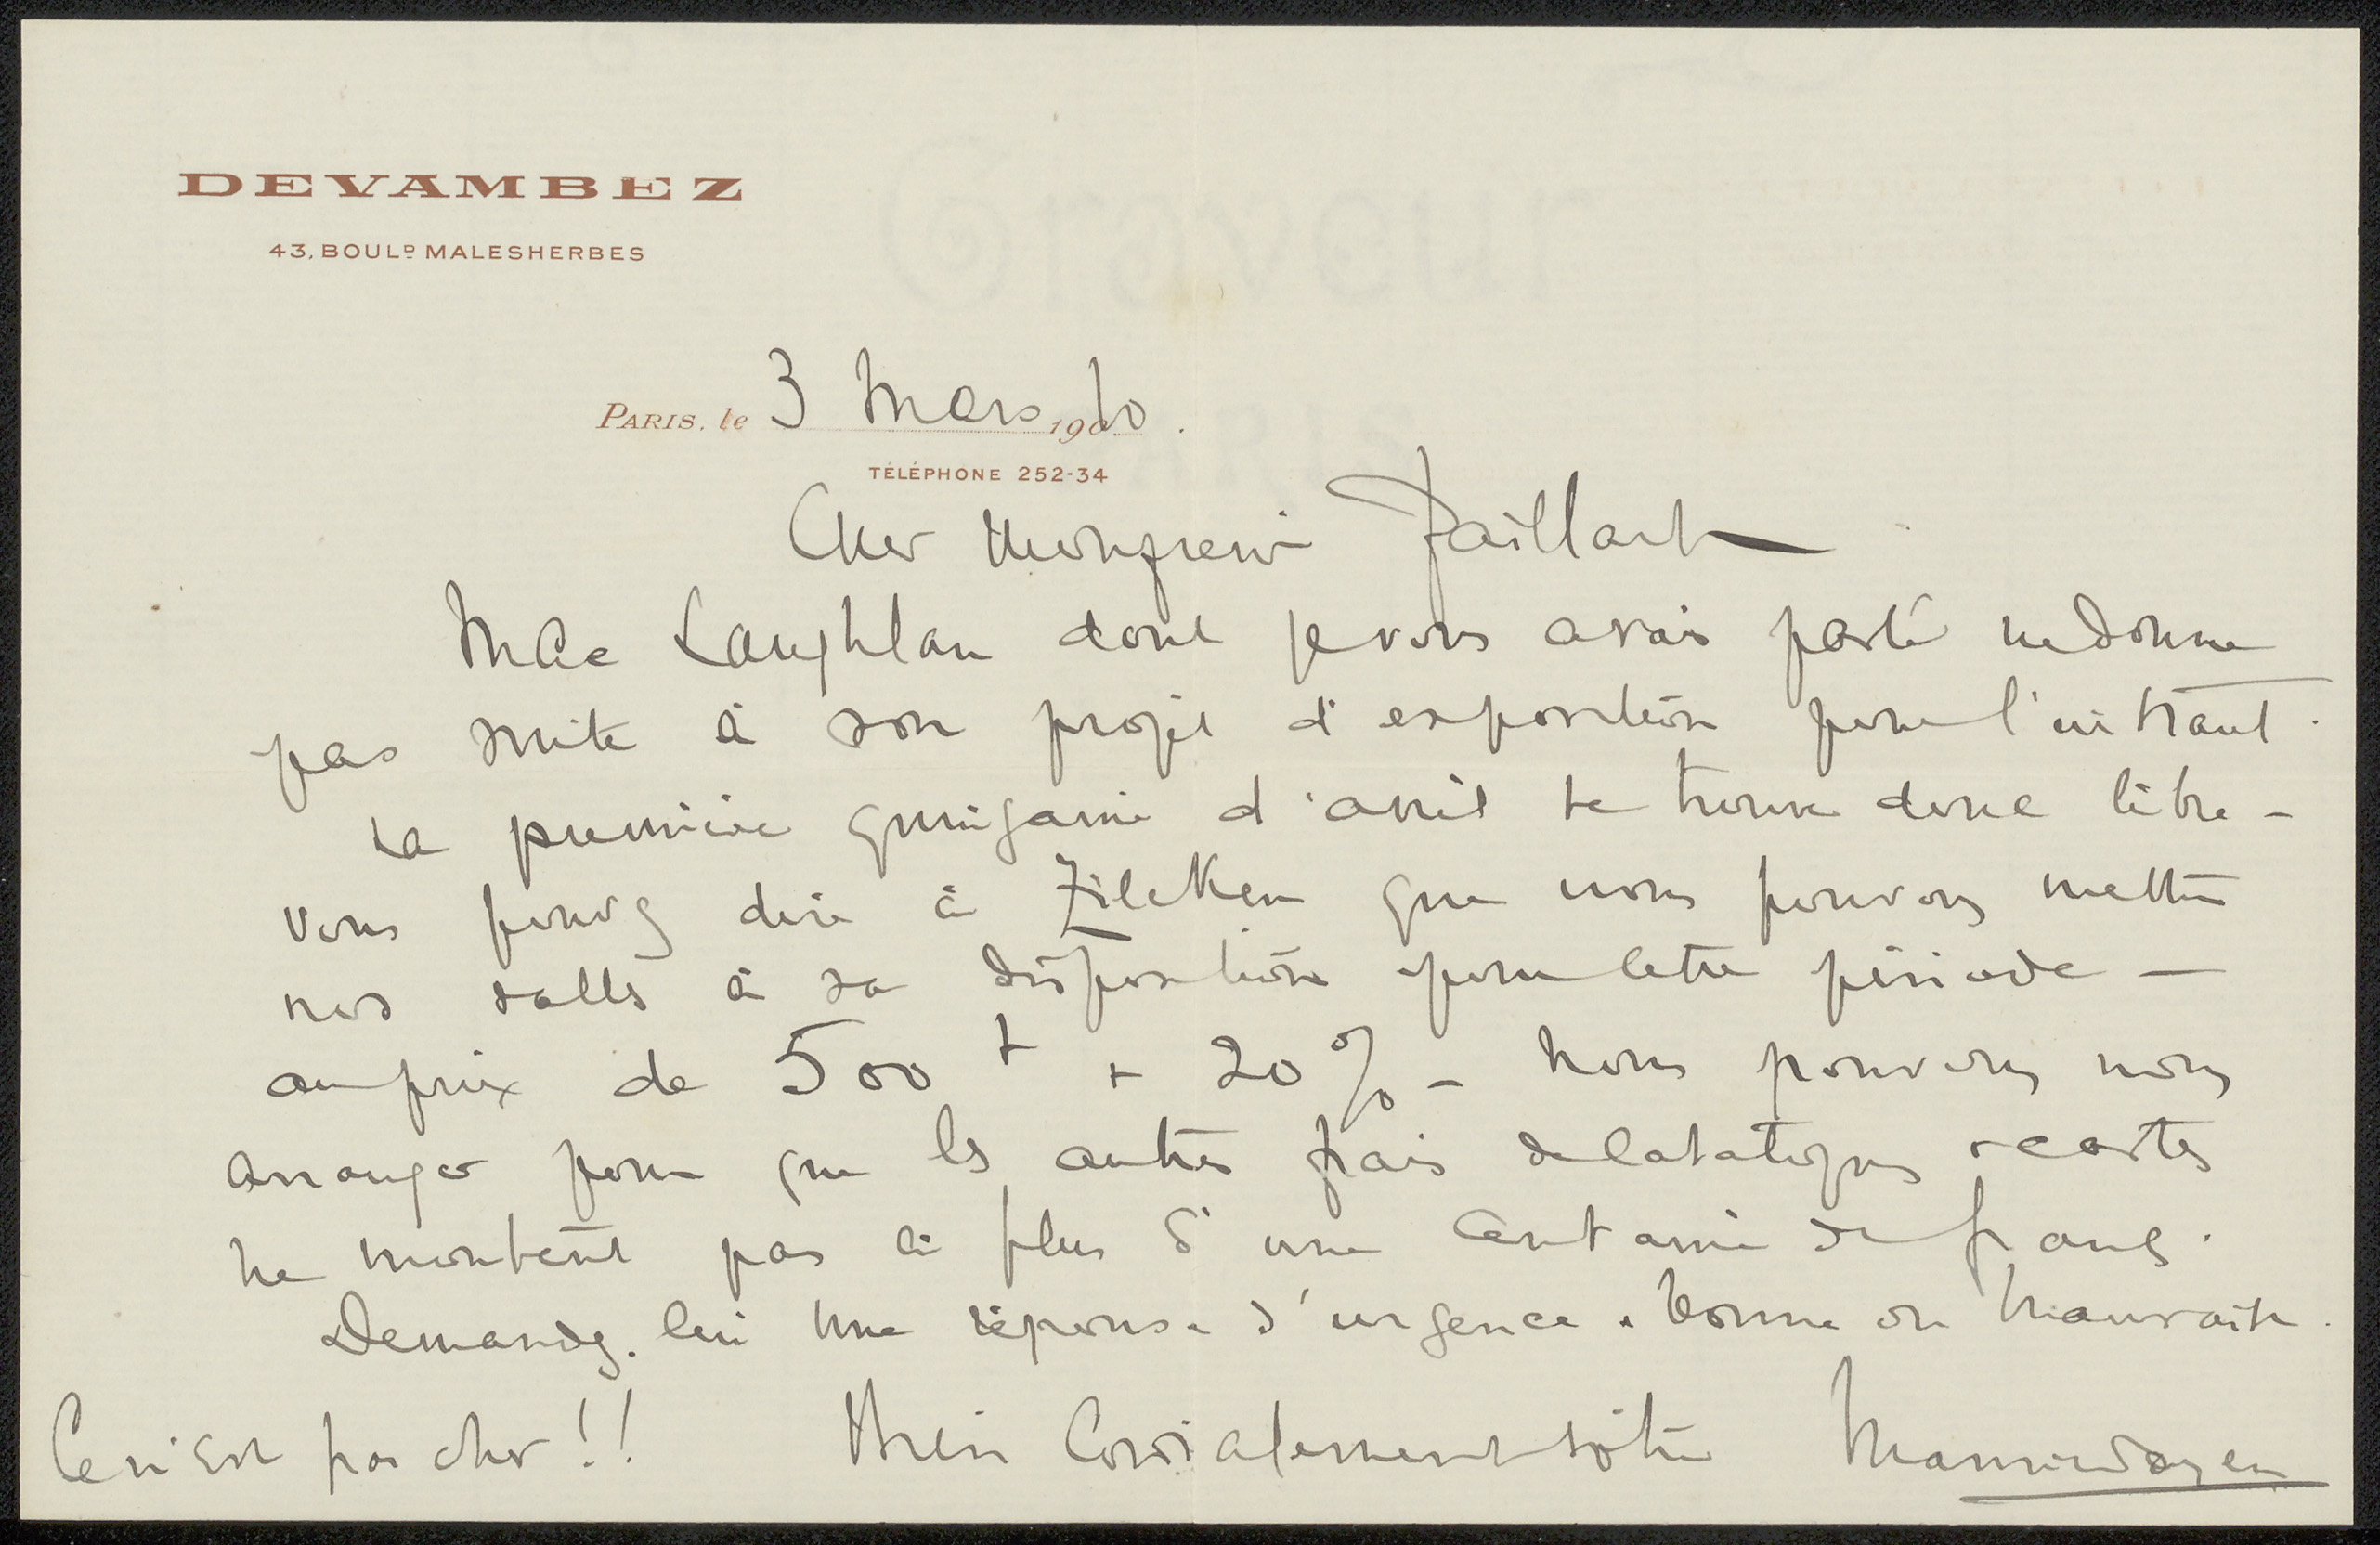 DEVAMBEZ
43, BOULD MALESHERBES
PARIS, le 3 Mars 1910.
TÉLÉPHONE 252-34
Cher Monsieur Paillart
Mac Laughlan dont je vous avais parlé ne donne
pas suite à son projet d'exposition pour l'instant.
La première quinzaine d'avril se trouve donc libre -
Vous pouvez dire à Zilcken que nous pouvons mettre
nos salles à sa disposition pour cette période -
au prix de 500 f + 20% - Nous pouvons nous
arranger pour que les autres frais de catalogues & cartes
ne montent pas à plus d'une centaine de francs.
Demandez-lui une réponse d'urgence. bonne ou mauvaise.
Ce n'est pas cher!! Bien Cordialement vôtre